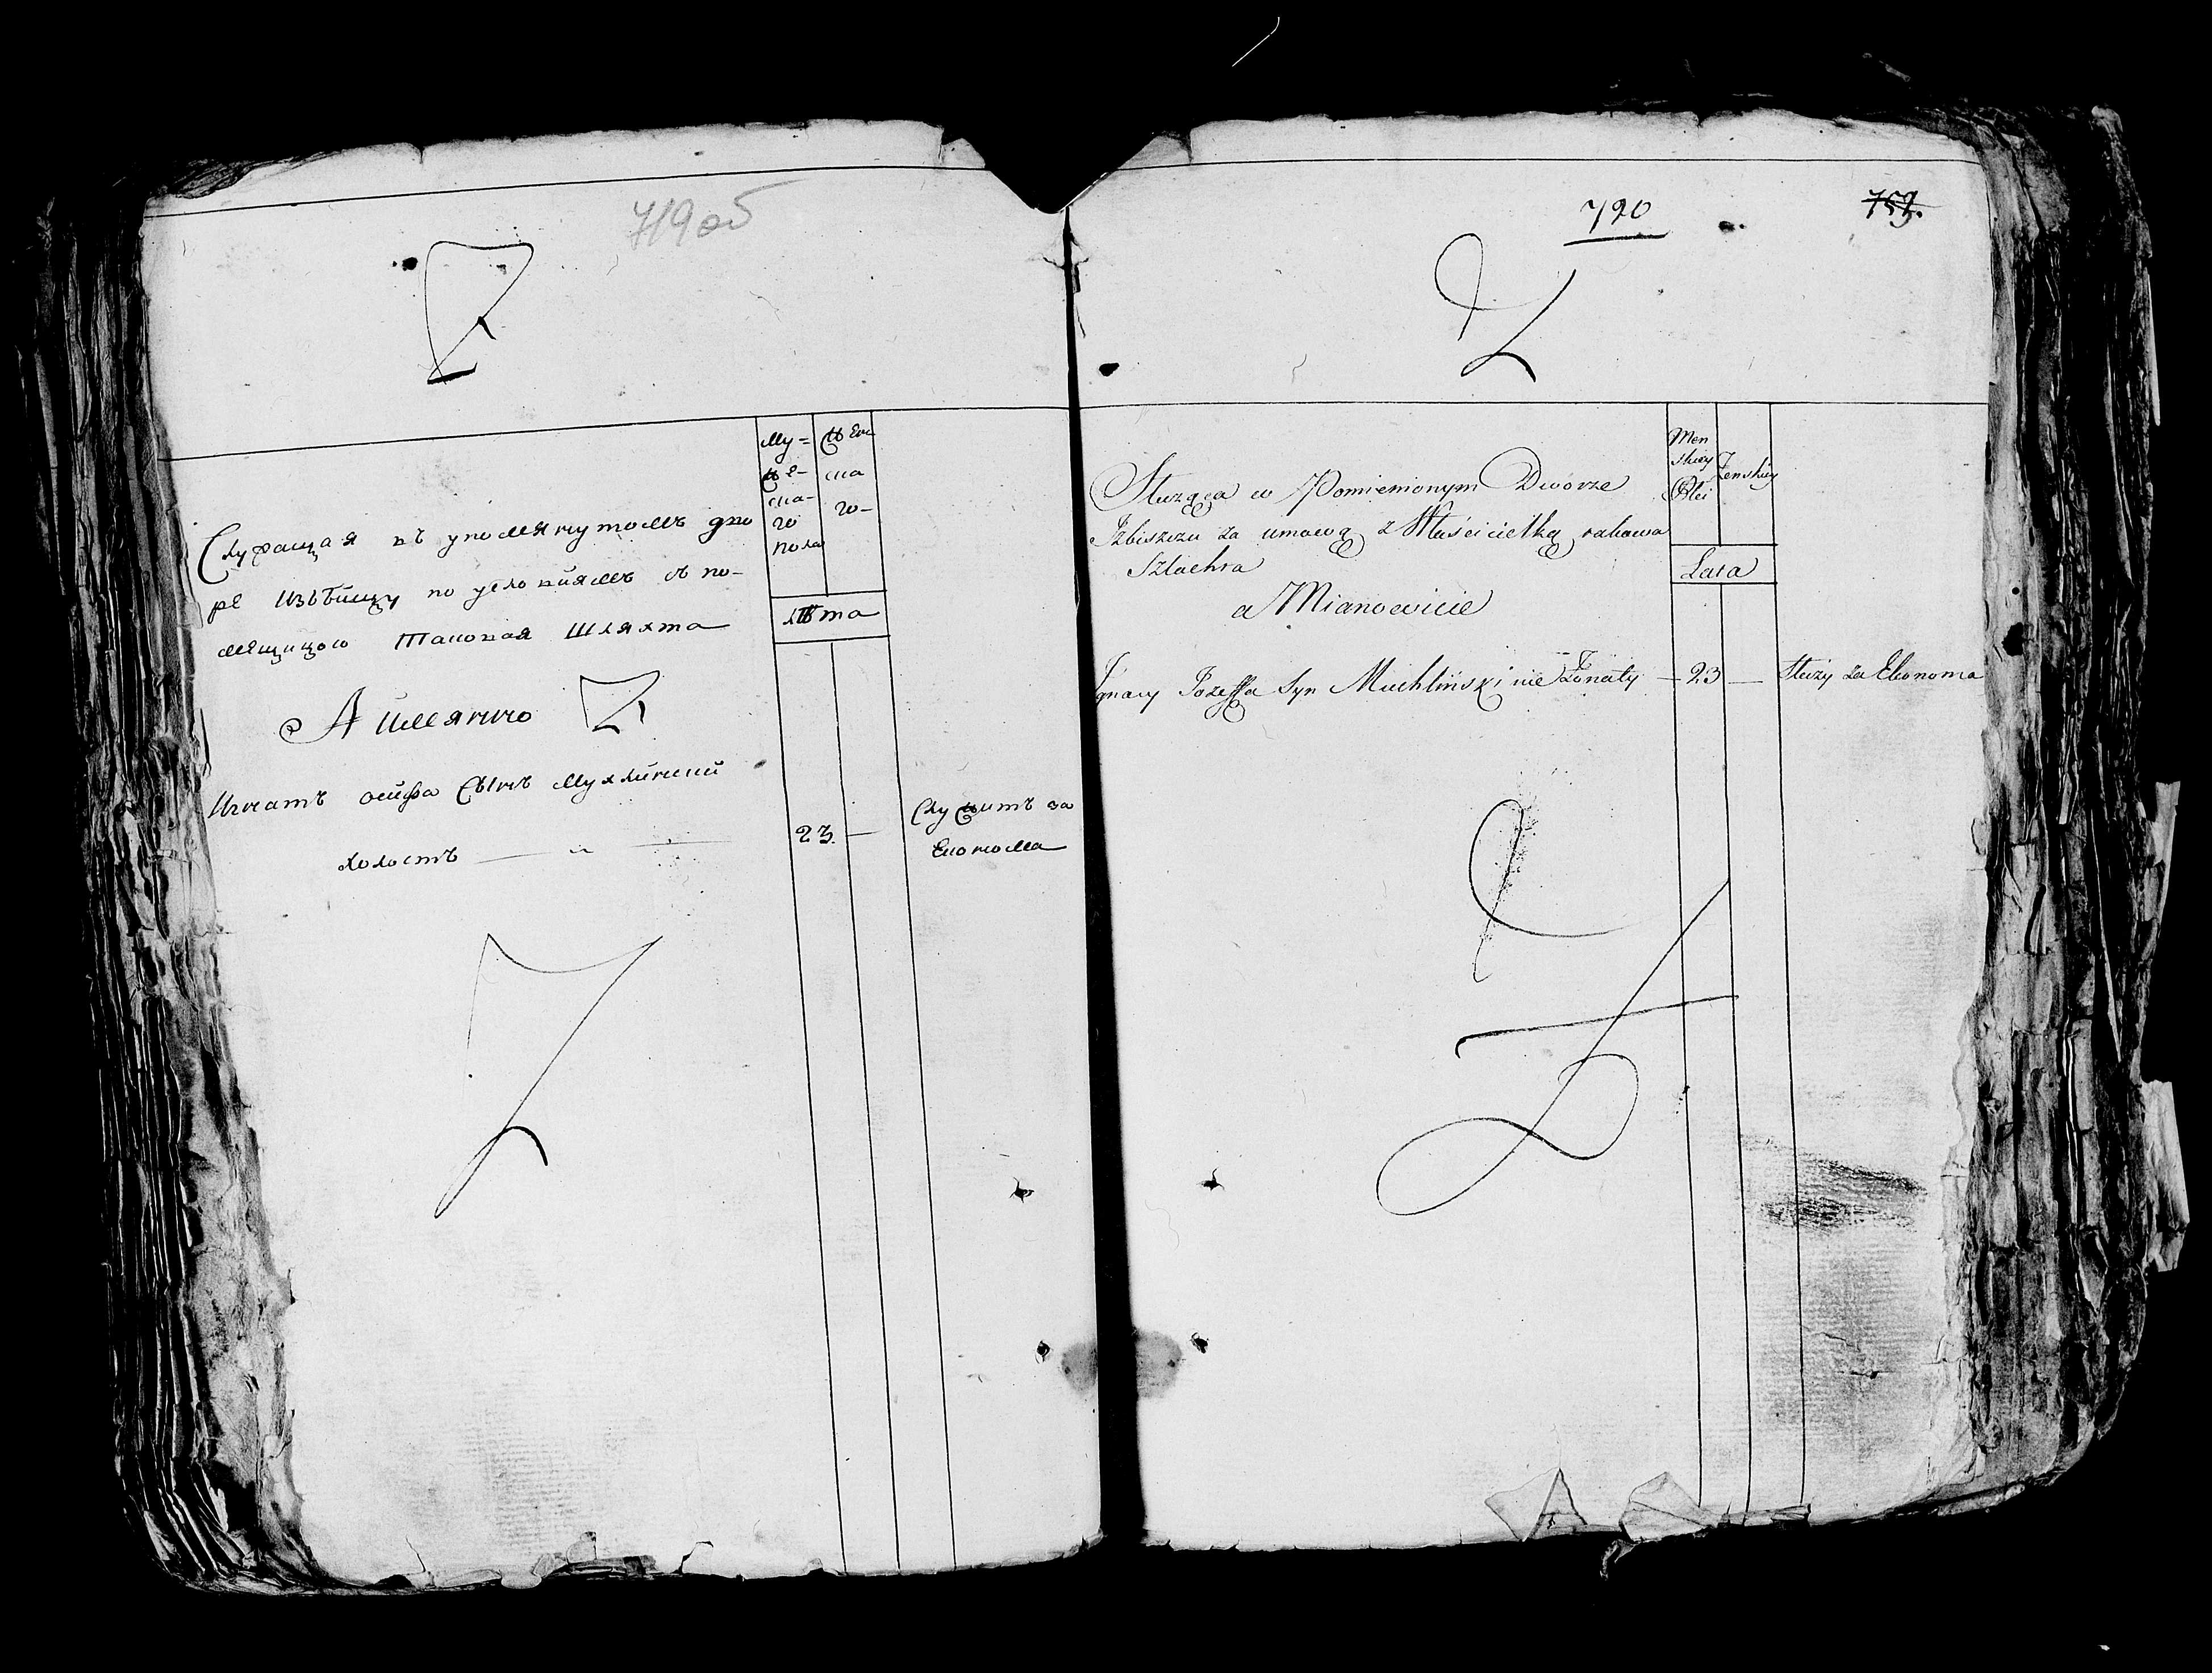 719 об
Му= Жен
же- ска
ска- го-
го
пола
Лѣта
Служащая въ упомянутомъ дво
ре Избищу по условиямъ съ по-
мещицою таковая шляхта
А имянно
Игнатъ осифа Сынъ Мухлинский
холостъ — 23. — Служитъ за
Економа
720 752.
Men
skiey Żenskiey
Płci
Lata
Służąca w Pomienionym Dworze
Izbiszczu za umową z Właścicielką rakowa
Szlachta
a Mianowicie
Ignacy Jozeffa Syn Muchliński nie Żonaty — 23 — Służy za Ekonoma